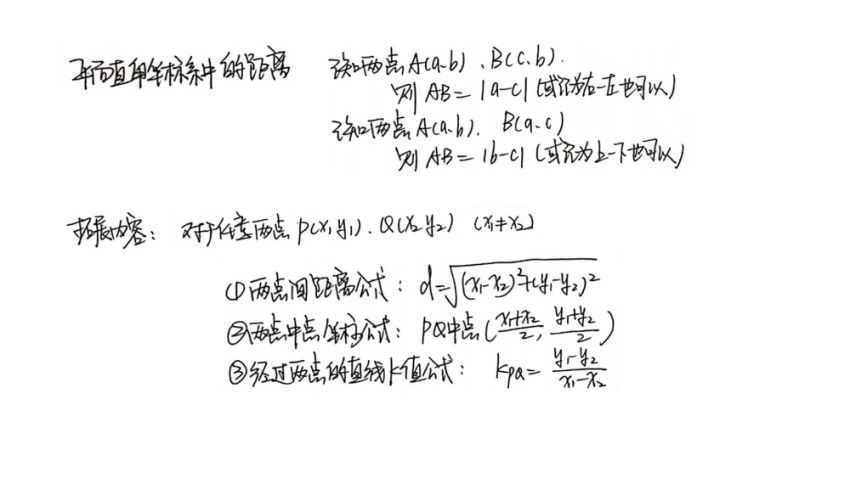 平面直角坐标系中的距离 已知两点A(a.b)、B(c.b).
则 AB=|a-c|(或记为右-左也可以)
已知两点A(a.b). B(a.c)
则 AB=|b-c|(或记为上-下也可以)
拓展内容: 对于任意两点P(x₁y₁). Q(x₂y₂) (x₁≠x₂)
①两点间距离公式: d=√(x₁-x₂)²+(y₁-y₂)²
②两点中点坐标公式: PQ中点(x₁+x₂/2, y₁+y₂/2)
③经过两点的直线k值公式: kPQ=y₁-y₂/x₁-x₂